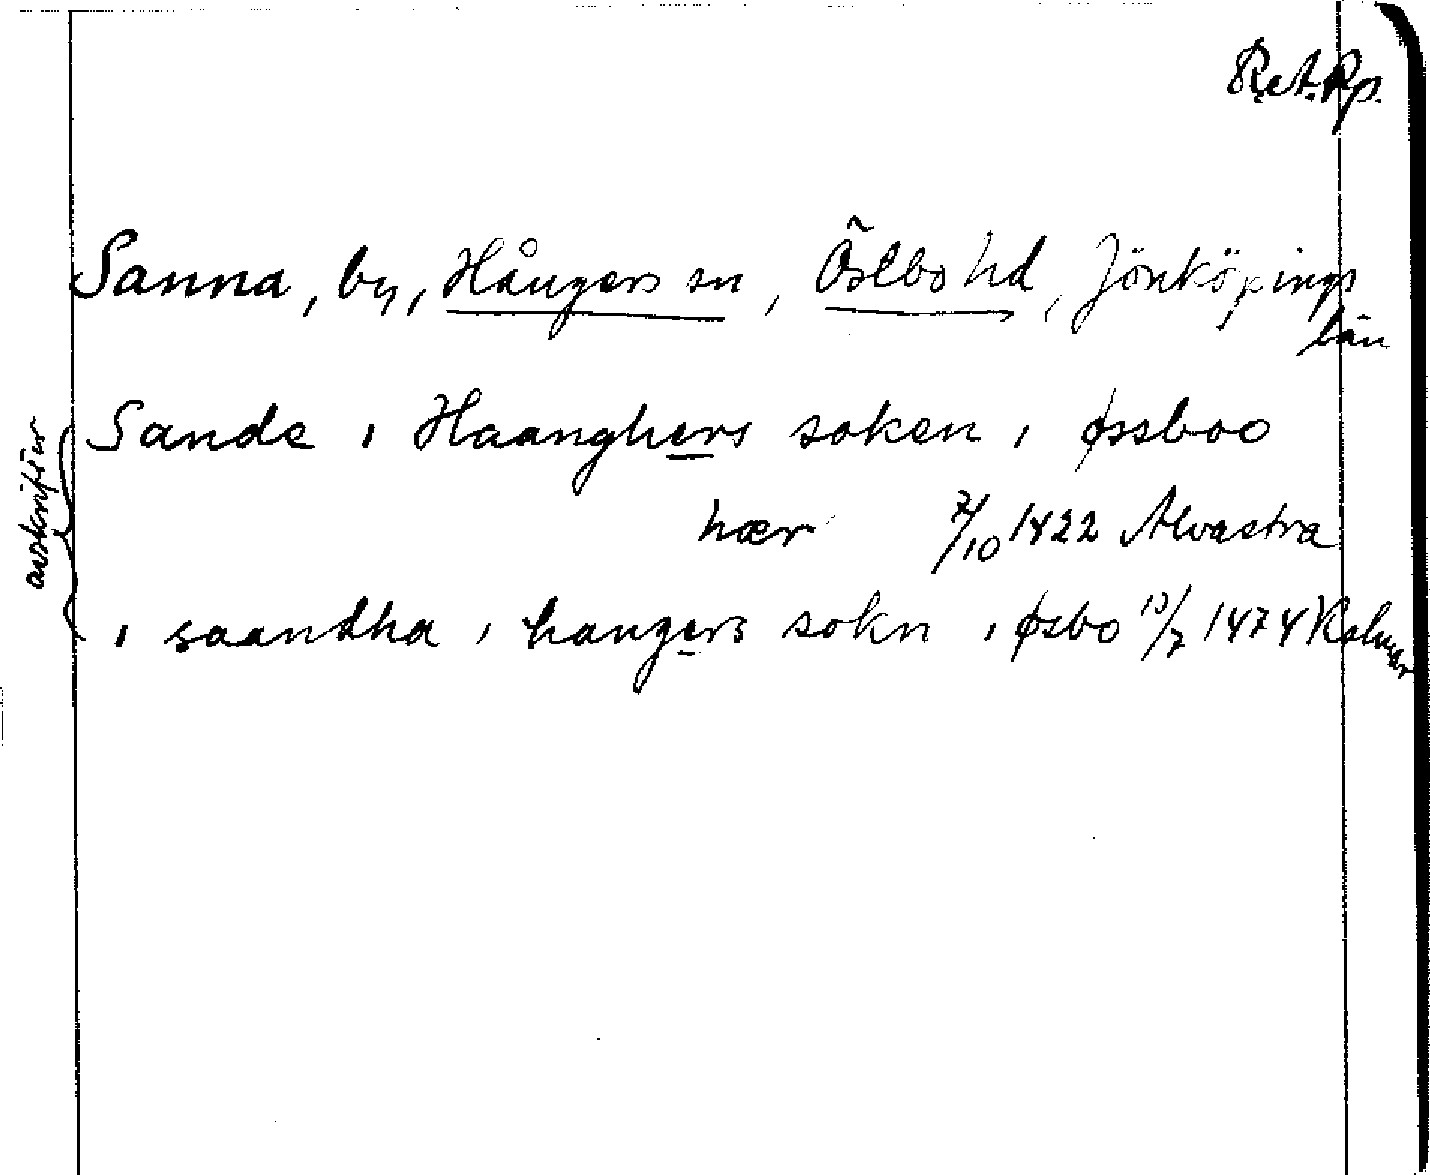 R.A. Pp.
Sanna, by, Hångers sn, Östbo hd, Jönköpings
län
Sande i Haanghers soken i øssboo
hær 7/10 1422 Alvastra
avskrifter
i saandha i hangers sokn i øsbo 10/7 1474 Kalmar